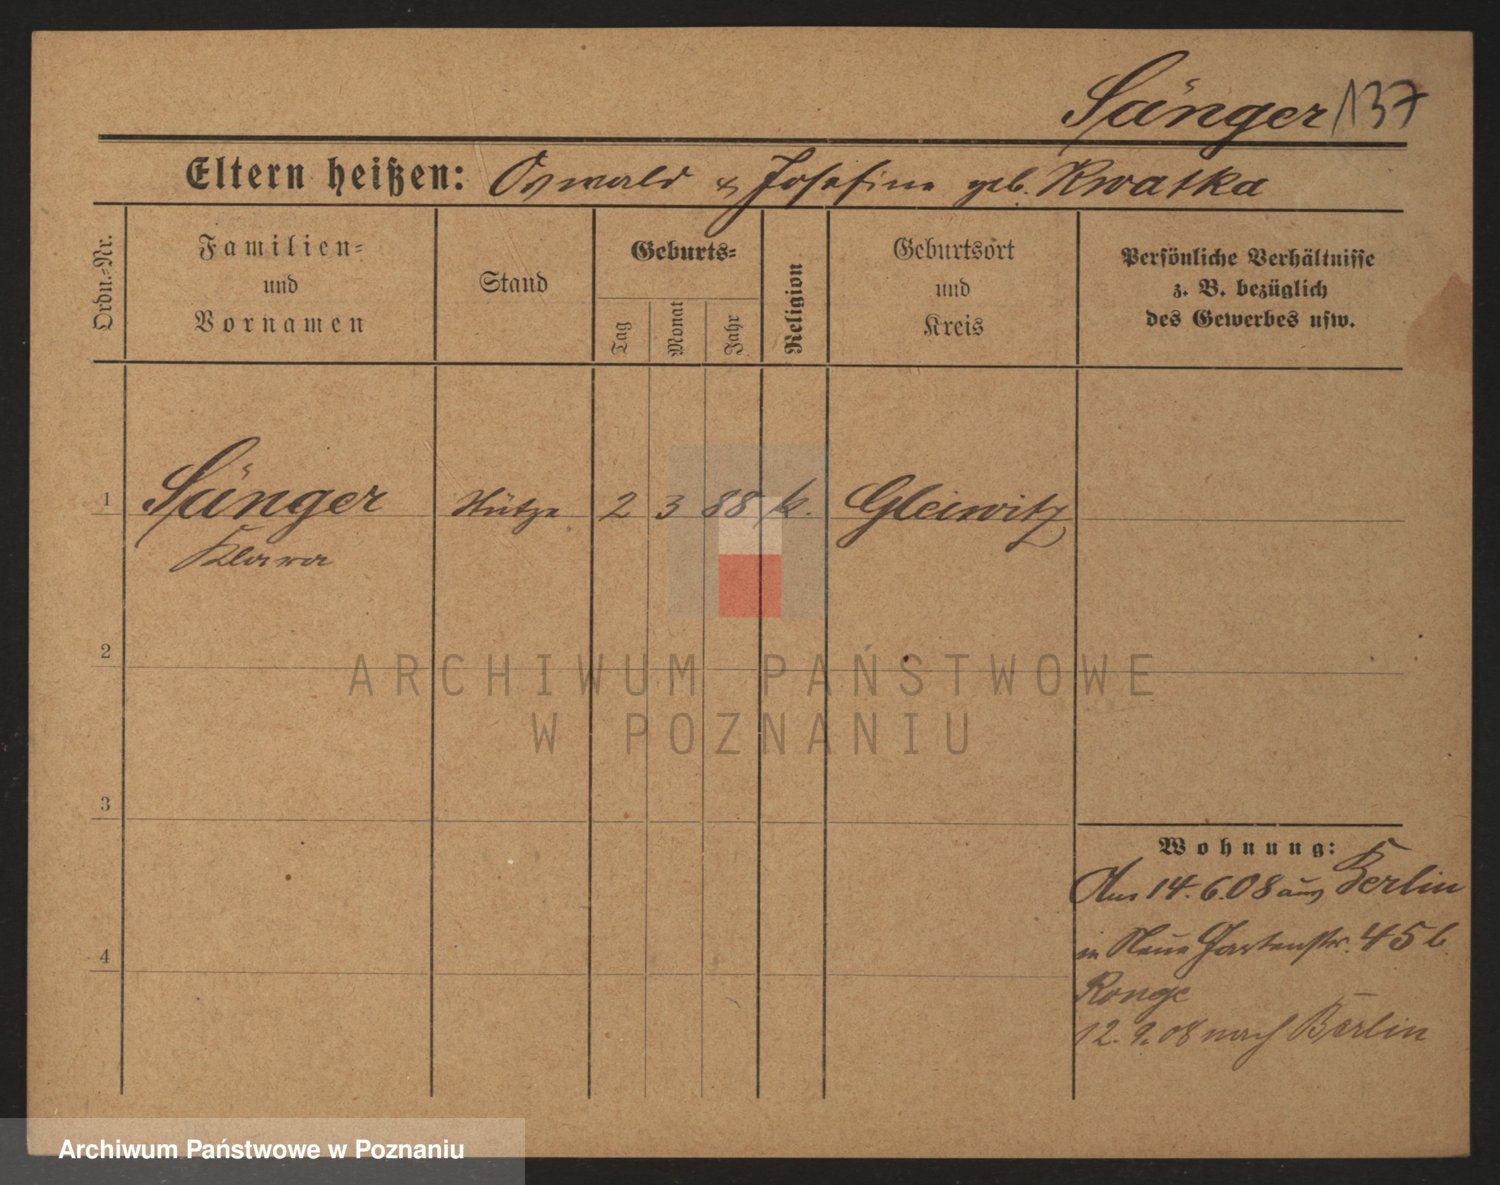 Sänger 137
Eltern heißen: Oswald & Josefine geb. Kwatka
Ordn.-Nr.
Familien-
und
Vornamen
Stand
Geburts-
Tag
Monat
Jahr
Religion
Geburtsort
und
Kreis
Persönliche Verhältnisse
z. B. bezüglich
des Gewerbes usw.
1 Sänger Stütze 2 3 88 k. Gleiwitz
Klara
2
ARCHIWUM PAŃSTWOWE
W POZNANIU
3
Wohnung:
Am 14.6.08 aus Berlin
in Neue Gartenstr. 45 b.
Ronge
4
12.9.08 nach Berlin
Archiwum Państwowe w Poznaniu